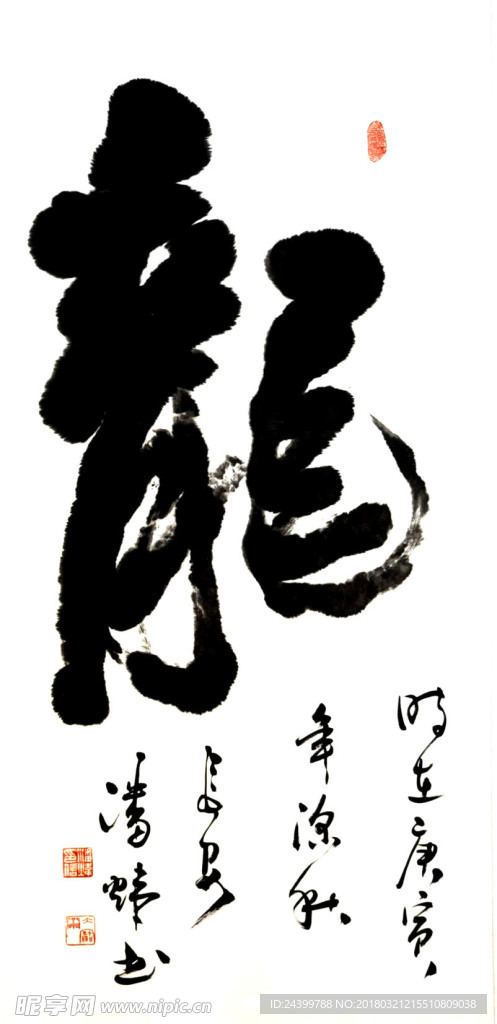 龍
时在庚寅
年深秋
长安
潘 书
昵享网 www.nipic.cn
ID:24399788 NO:20180321215510809038